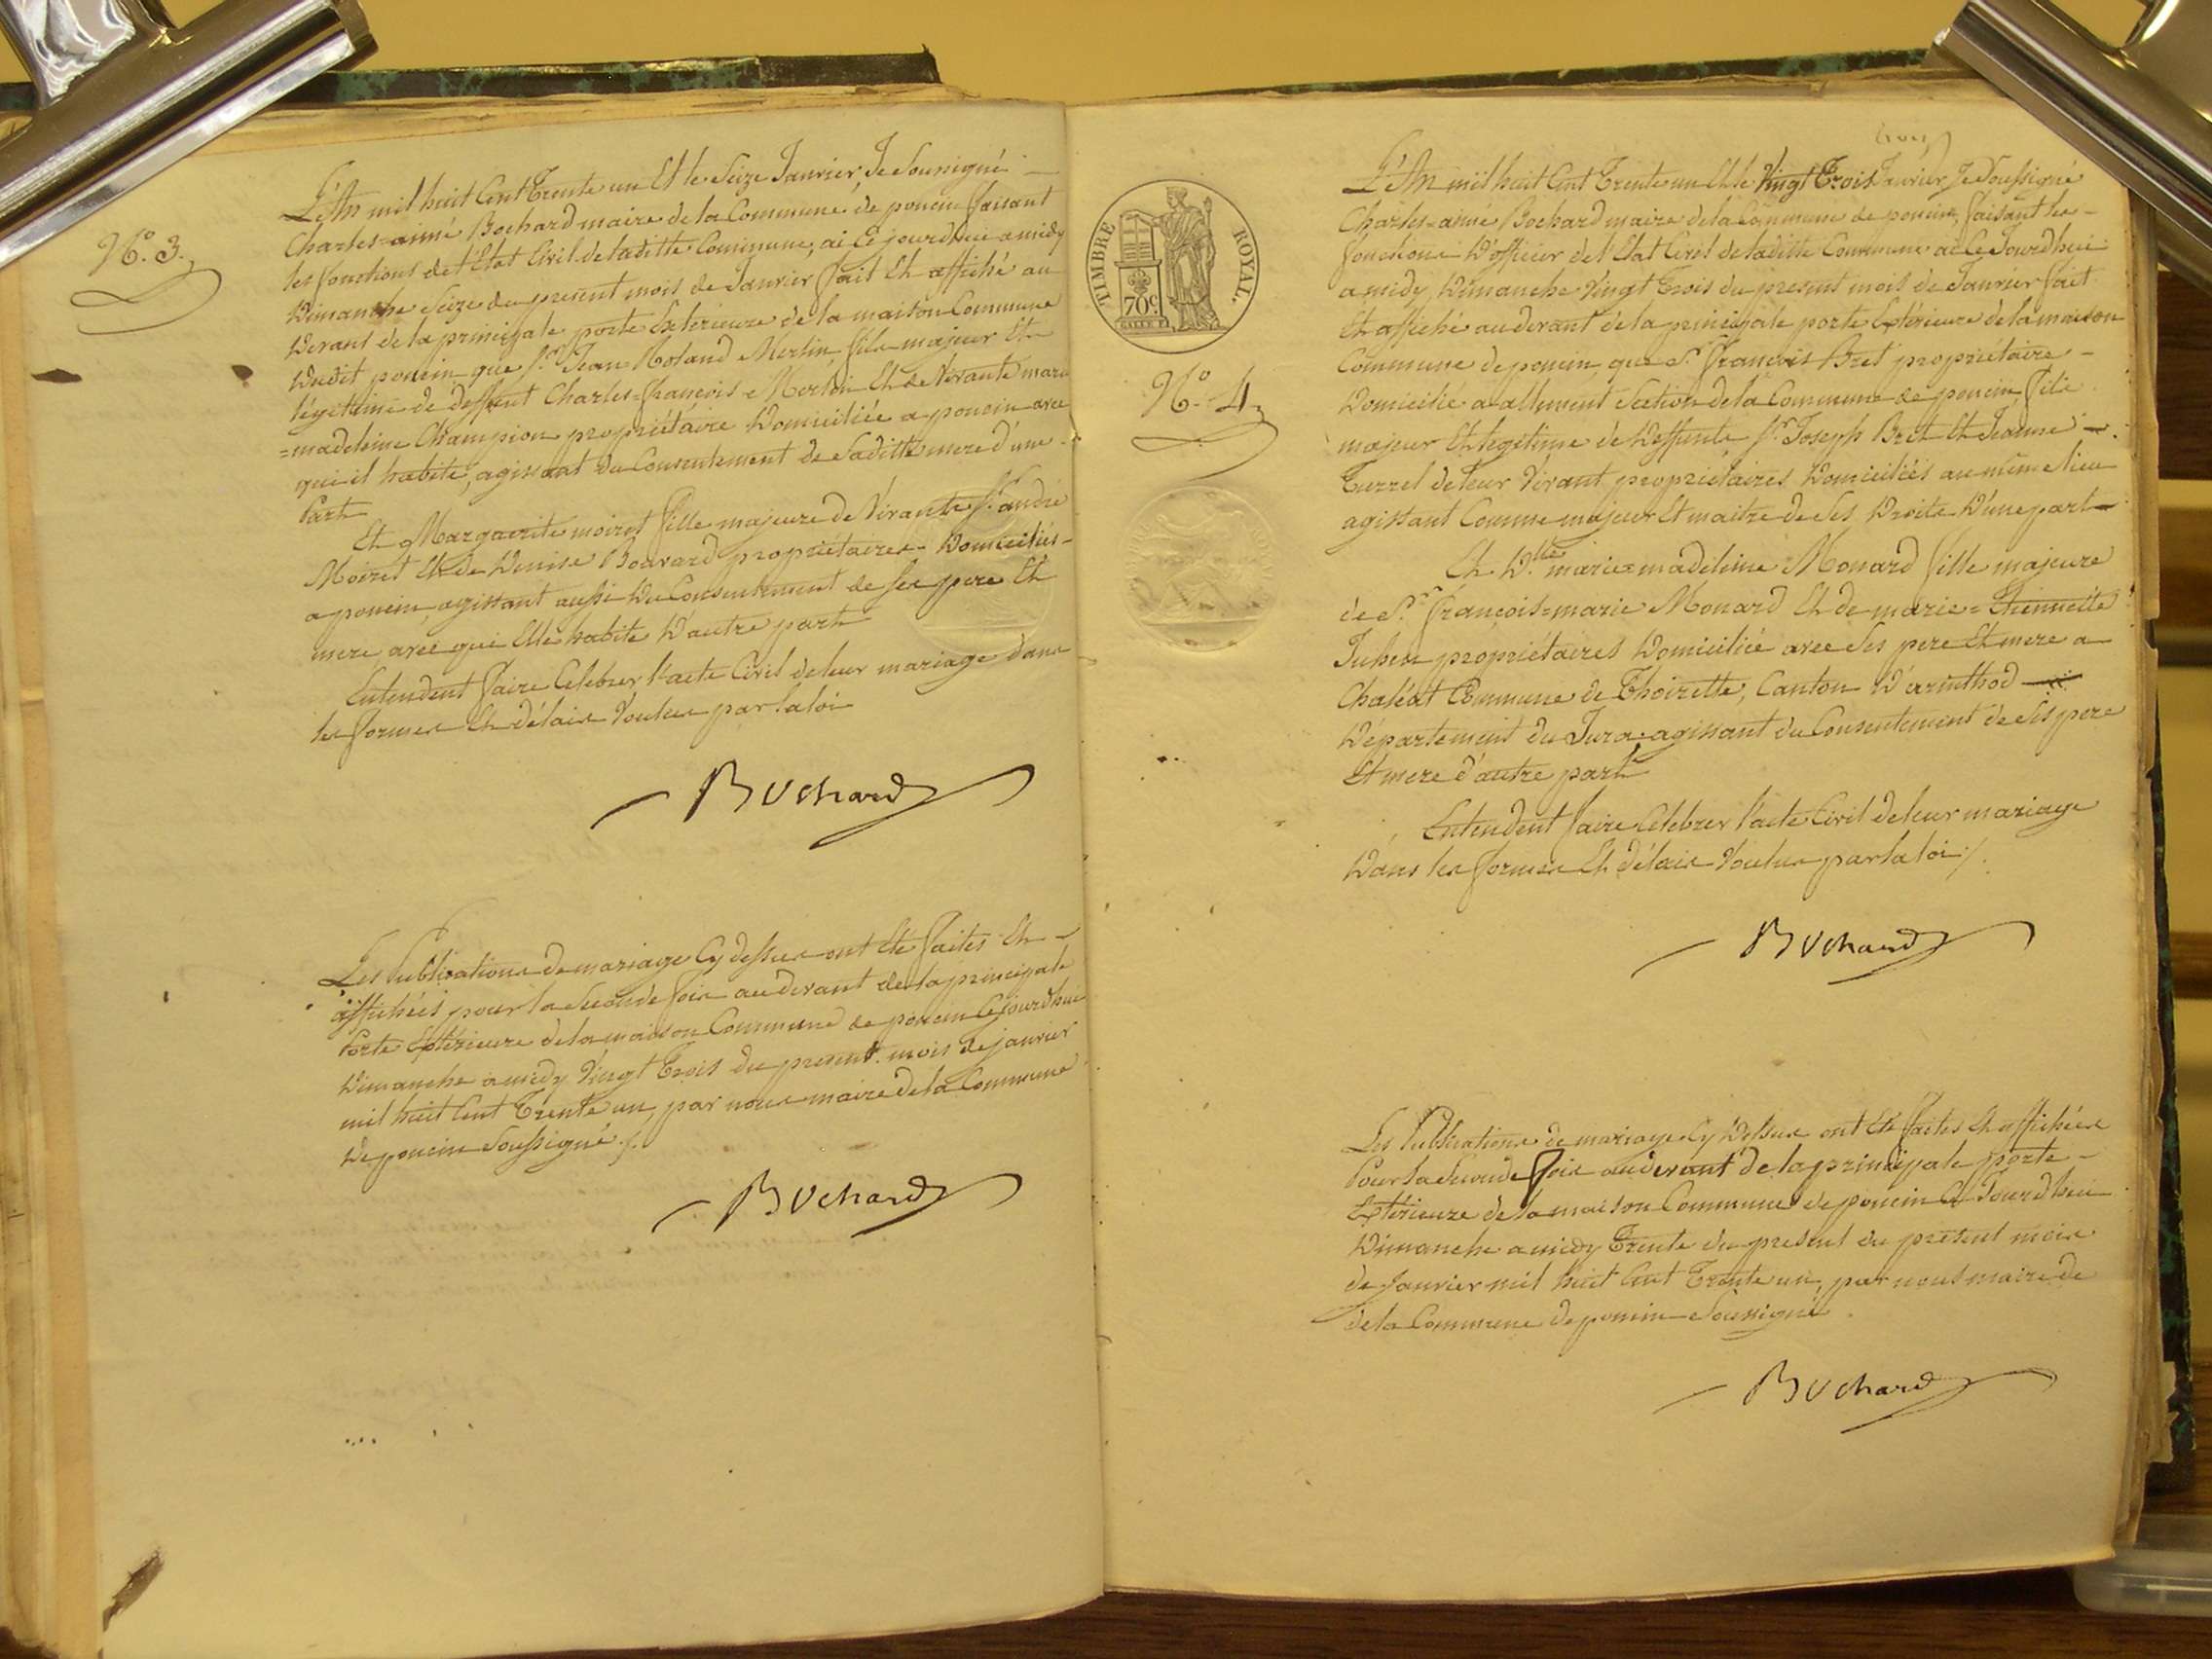 N.o 3.
L'An mil huit Cent Trente un Et le Seize Janvier, Je Soussigné
Charles=aimé Bochard maire de la Commune de poncin faisant
les fonctions de l'Etat Civil de laditte Commune, ai Ce jourdhui a midy
Dimanche Seize du present mois de Janvier fait Et affiché au
Devant de la principale porte Exterieure de la maison Commune
Dudit poncin que Sr. Jean Roland Merlin, fils majeur Et
légitime de deffunt Charles=François Merlin Et de Vivante marie
=madeleine Champion propriétaire Domiciliée a poncin avec
qui il habite, agissant du Consentement de Saditte mere d'une
Part
Et Marguerite moiret fille majeure de Vivants Sr. andré
Moiret Et de Denise Bouvard propriétaires Domiciliés
a poncin, agissant aussi Du Consentement de Ses pere Et
mere avec qui Elle habite D'autre part
Entendent faire Celebrer l'acte Civil de leur mariage dans
les formes Et délais Voulus par la loi
Bochard
Les Publications de mariage Cy dessus ont Eté faites Et
affichées pour la Seconde fois au devant de la principale
Porte Extérieure de la maison Commune de poncin Ce jourdhui
Dimanche a midy Vingt Trois du present mois de janvier
mil huit Cent Trente un, par nous maire de la Commune
De poncin Soussigné ./.
Bochard
TIMBRE ROYAL.
70c.
N.o 4
trois
L'An mil huit Cent Trente un Et le Vingt Trois Janvier Je Soussigné
Charles=aimé Bochard maire de la Commune de poncin, faisant les
fonctions D'officier de l'Etat Civil de laditte Commune ai Ce Jourdhui
a midy Dimanche Vingt Trois du present mois de Janvier fait
Et affiché au devant de la principale porte Extérieure de la maison
Commune de poncin que Sr. François Bret propriétaire
Domicilié a allement Section de la Commune de poncin, fils
majeur Et legitime de Deffunts Sr. Joseph Bret Et Jeanne
Turrel de leur Vivant propriétaires Domiciliés au même lieu
agissant Comme majeur Et maitre de Ses Droits D'une part
Et Dlle. marie=madeleine Monard fille majeure
de Sr. François=marie Monard Et de marie=Thiennette
Juhen propriétaires Domiciliée avec Ses pere Et mere a
Chaléat Commune de Thoirette, Canton D'arinthod
Département du Jura agissant du Consentement de Ses pere
Et mere d'autre part
Entendent faire Celebrer l'acte Civil de leur mariage
Dans les formes Et délais Voulus par la loi /.
Bochard
Les Publications de mariage Cy Dessus ont Eté faites Et affichées
Pour la Seconde fois au devant de la principale porte
Extérieure de la maison Commune de poncin Ce Jourdhui
Dimanche a midy Trente du present du présent mois
de Janvier mil huit Cent Trente un, par nous maire de
de la Commune de poncin Soussigné.
Bochard